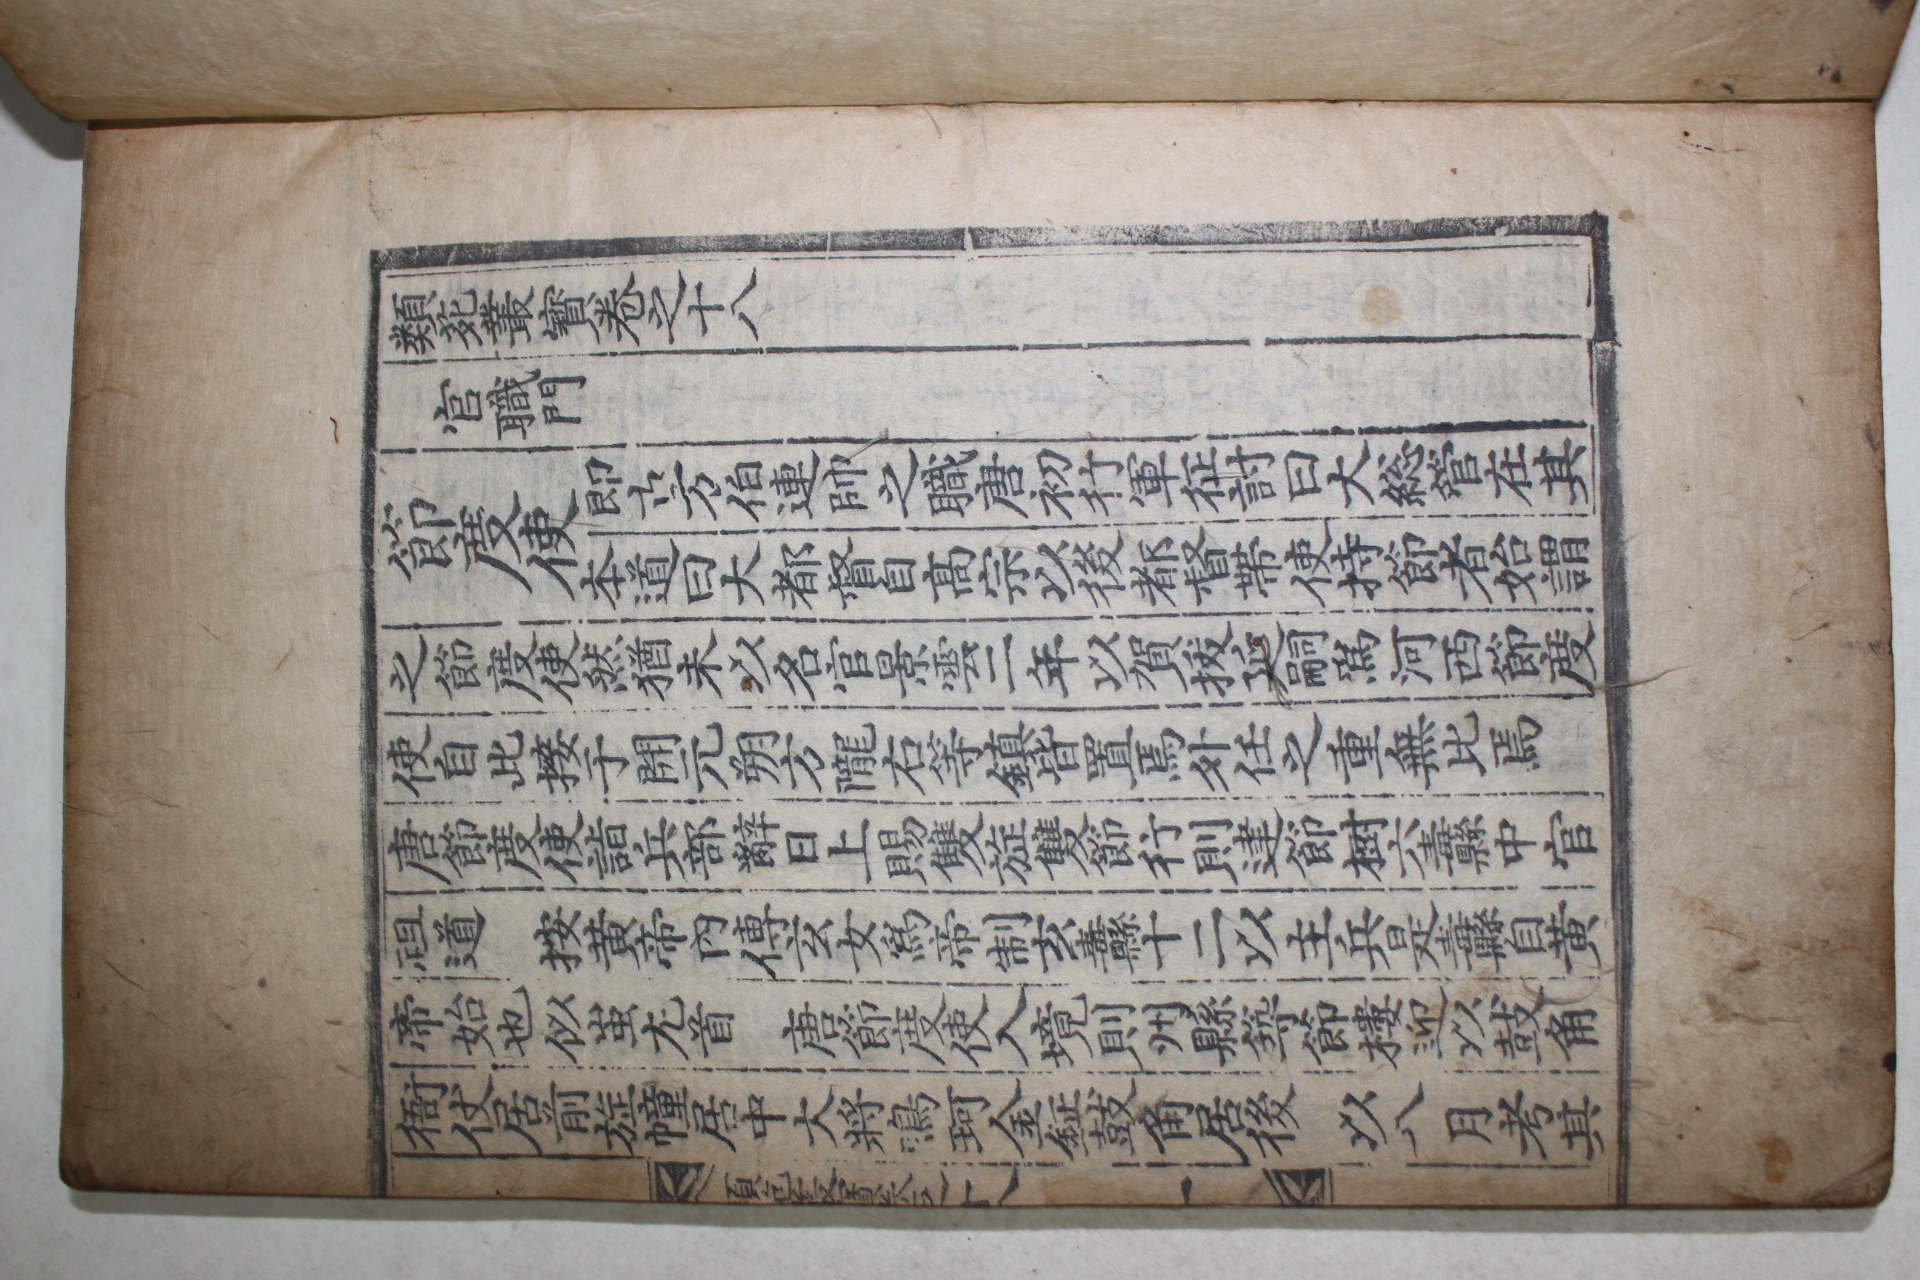 類苑叢寶卷之十八
官職門
節度使
即古方伯連帥之職唐初行軍征討曰大緫管在其
本道曰大都督自高宗以後都督帶使持節者始謂
之節度使然猶未以名官景雲二年以賀拔延嗣爲河西節度
使自此接于開元朔方隴右等鎮皆置焉外任之重無比焉
唐節度使詣兵部辭日上賜雙㫌雙節行則建節樹六纛縣中官
祖道 按黃帝內傳玄女爲帝制玄纛十二以主兵是纛自黃
帝始也似蚩尤首 唐節度使入境則州縣築節樓迎以鼓角
衙仗居前㫌幢居中大將鳴珂金鉦鼓角居後 以八月考其
類苑叢寶卷之十八 一